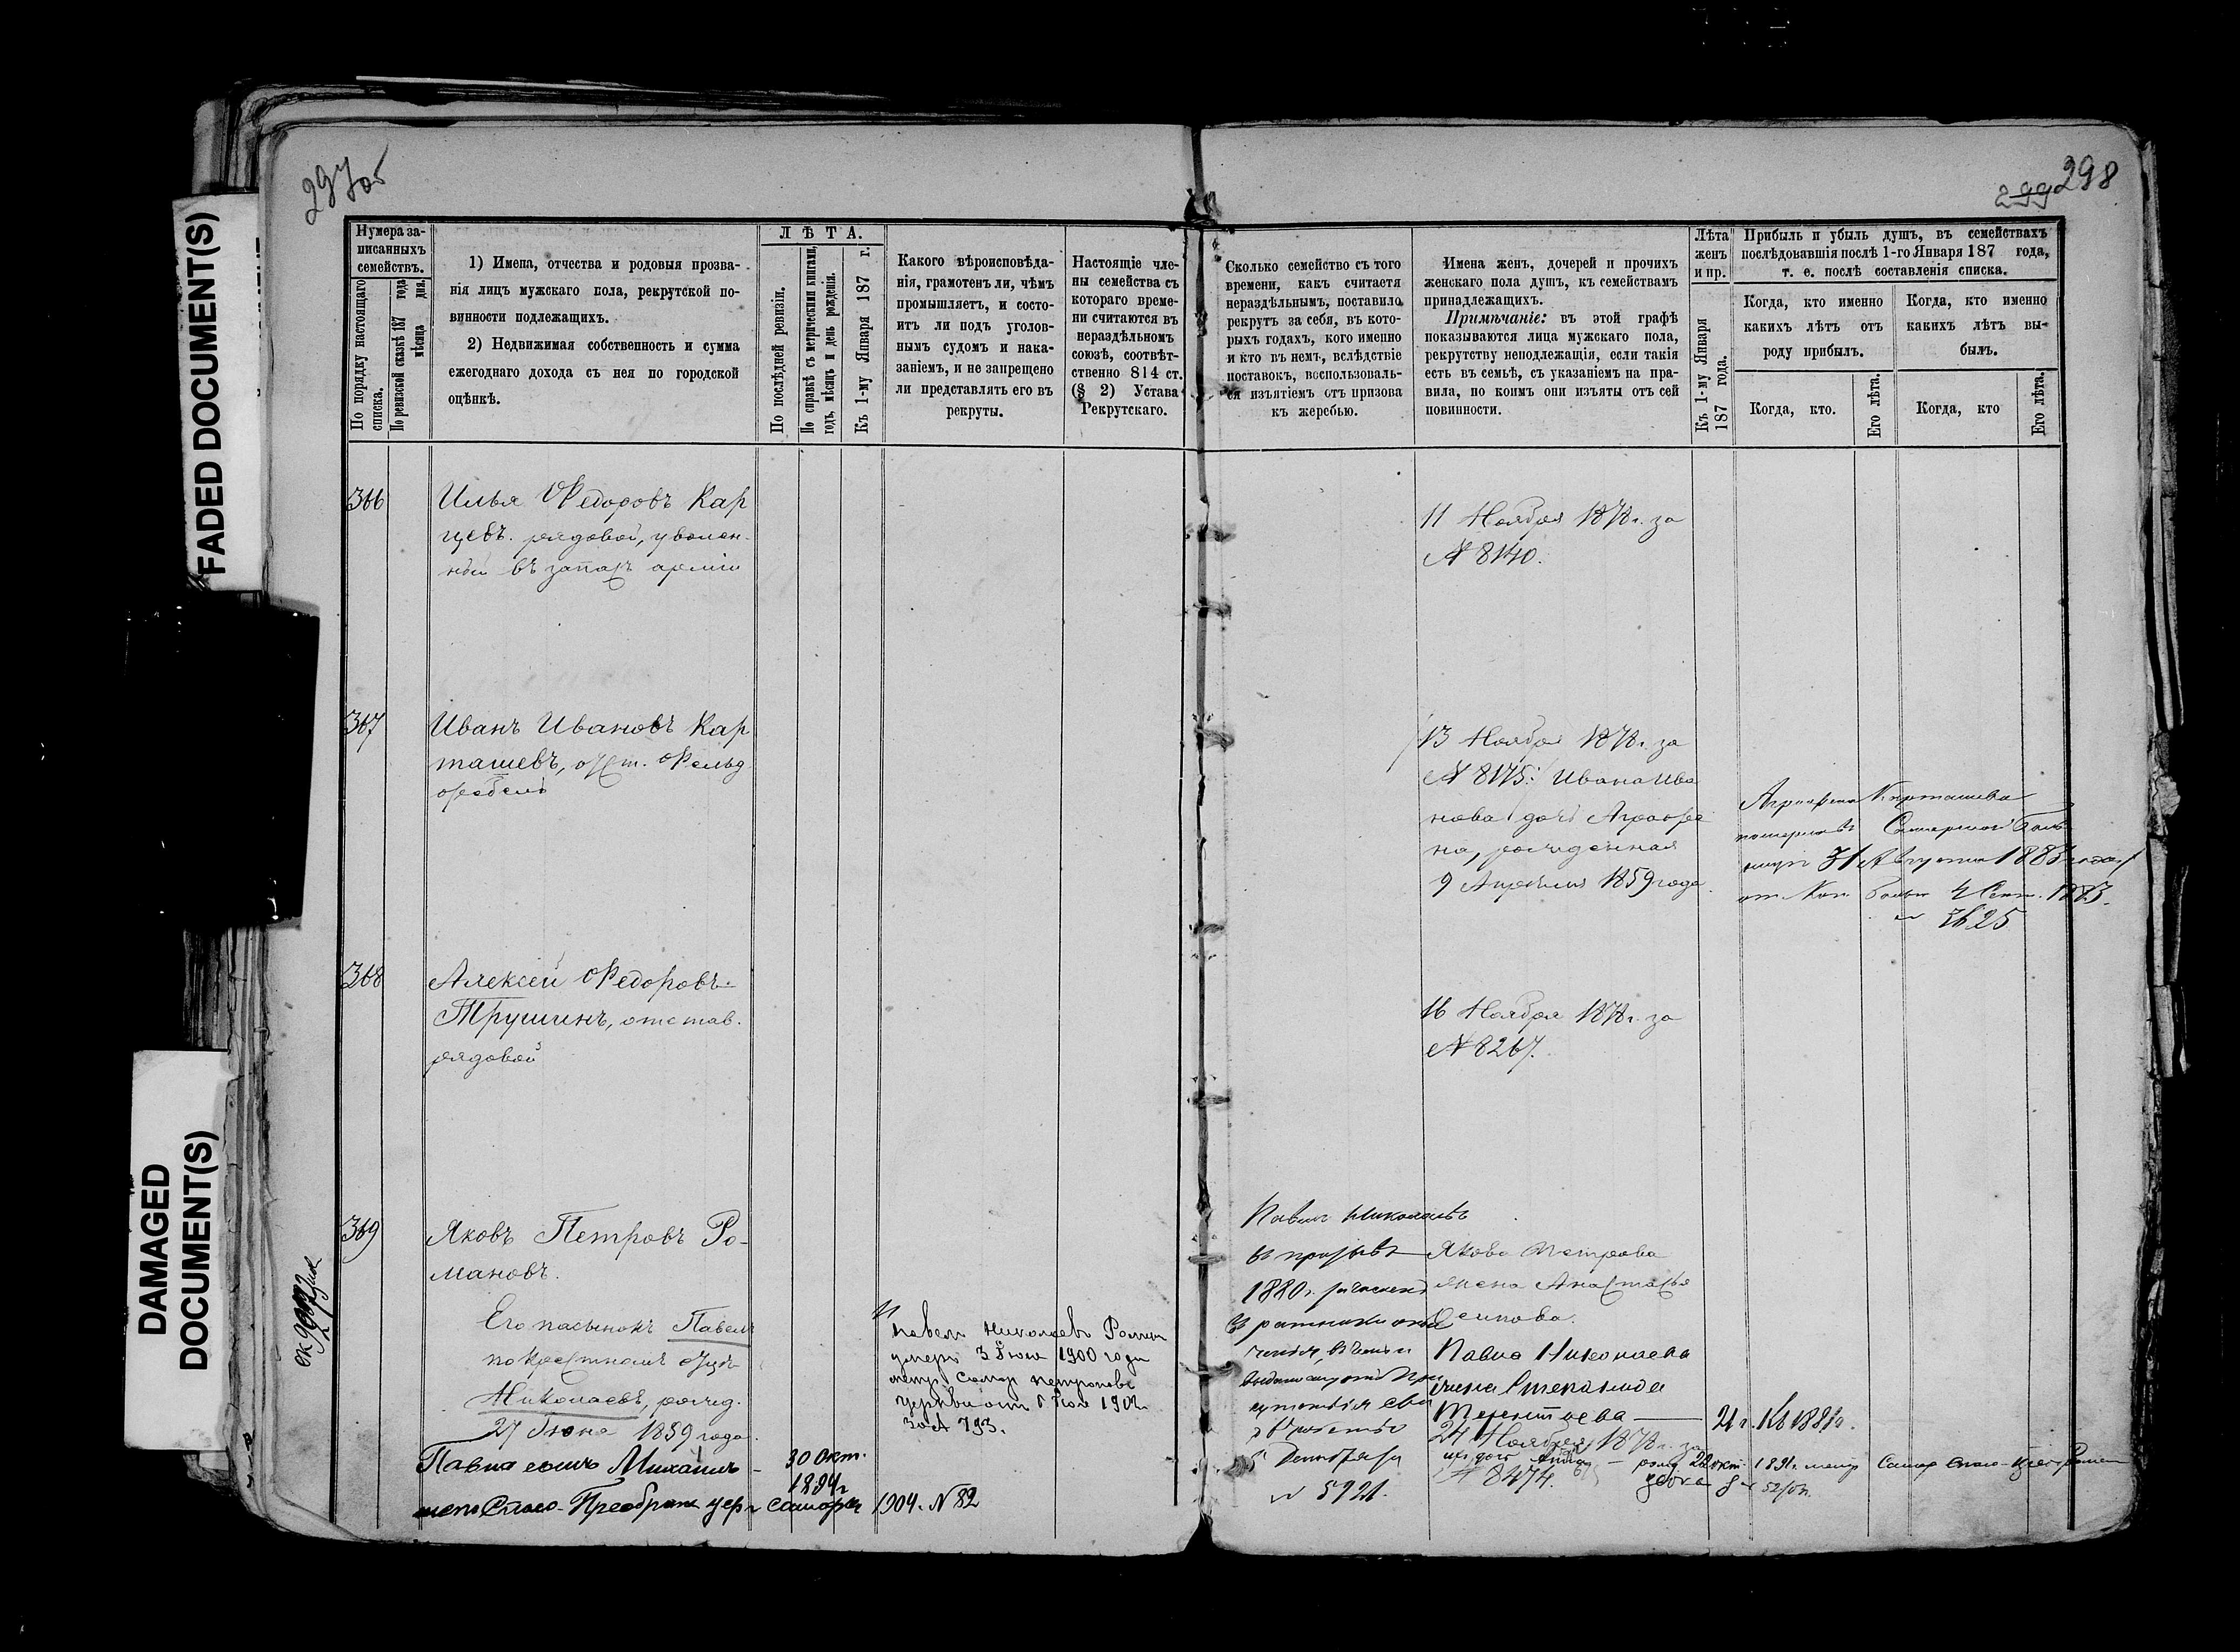 297об
299 298
FADED DOCUMENT(S)
DAMAGED
DOCUMENT(S)
Нумера за-
писанныхъ
семействъ.
По порядку настоящаго
списка.
По ревизской сказкѣ 187 года
мѣсяца дня.
1) Имена, отчества и родовыя прозва-
нія лицъ мужскаго пола, рекрутской по-
винности подлежащихъ.
2) Недвижимая собственность и сумма
ежегоднаго дохода съ нея по городской
оцѣнкѣ.
ЛѢТА.
По послѣдней ревизіи.
По справкѣ съ метрическими книгами,
годъ, мѣсяцъ и день рожденія.
Къ 1-му Января 187 г.
Какого вѣроисповѣда-
нія, грамотенъ ли, чѣмъ
промышляетъ, и состо-
итъ ли подъ уголов-
нымъ судомъ и нака-
заніемъ, и не запрещено
ли представлять его въ
рекруты.
Настоящіе чле-
ны семейства съ
котораго време-
ни считаются въ
нераздѣльномъ
союзѣ, соотвѣт-
ственно 814 ст.
(§ 2) Устава
Рекрутскаго.
Сколько семейство съ того
времени, какъ считается
нераздѣльнымъ, поставило
рекрутъ за себя, въ кото-
рыхъ годахъ, кого именно
и кто въ немъ, вслѣдствіе
поставокъ, воспользовал-
ся изъятіемъ отъ призова
къ жеребью.
Имена женъ, дочерей и прочихъ
женскаго пола душъ, къ семействамъ
принадлежащихъ.
Примѣчаніе: въ этой графѣ
показываются лица мужскаго пола,
рекрутству неподлежащія, если такія
есть въ семьѣ, съ указаніемъ на пра-
вила, по коимъ они изъяты отъ сей
повинности.
Лѣта
женъ
и пр.
Къ 1-му Января
187 года.
Прибыль и убыль душъ, въ семействахъ
послѣдовавшія послѣ 1-го Января 187 года,
т. е. послѣ составленія списка.
Когда, кто именно
какихъ лѣтъ отъ
роду прибылъ.
Когда, кто именно
какихъ лѣтъ вы-
былъ.
Когда, кто.
Его лѣта.
Когда, кто
Его лѣта.
366
Илья Федоровъ Кар
цевъ. рядовой, уволен-
ный въ запасъ арміи
11 Ноября 1878 г. за
№ 8140.
367
Иванъ Ивановъ Кар
ташевъ, отст. Фельд
фебель
13 Ноября 1878 г. за
№ 8175. Ивана Ива
нова дочь Аграфе
на, рожденная
9 Апрѣля 1859 года.
Аграфена Карташева
31 Августа 1883 года
4 Сент. 1883.
№ 3625
368
Алексѣй Федоровъ
Трушинъ, отстав.
рядовой
16 Ноября 1878 г. за
№ 8267.
369
Яковъ Петровъ Ро-
мановъ.
Его пасынокъ Павелъ
по крестному отцу
Николаевъ, рожд.
27 Іюня 1859 года.
Павла сынъ Михаилъ
30 Окт.
1894 г
Спасо-Преображ церк Самары 1904. № 82
Павелъ Николаевъ Роман
умеръ 3 Іюля 1900 года
церкви от Іюля 1902
за № 793.
Павелъ Николаевъ
въ призывъ
1880 г. зачисленъ
въ ратники опол
ченія,
Декабря
№ 5921.
Якова Петрова
жена Анастасья
Осипова.
Павла Николаева
жена Степанида
Терентьева — 21 г. Къ 1881 г.
24 Ноября 1878 г. за
№ 8474.